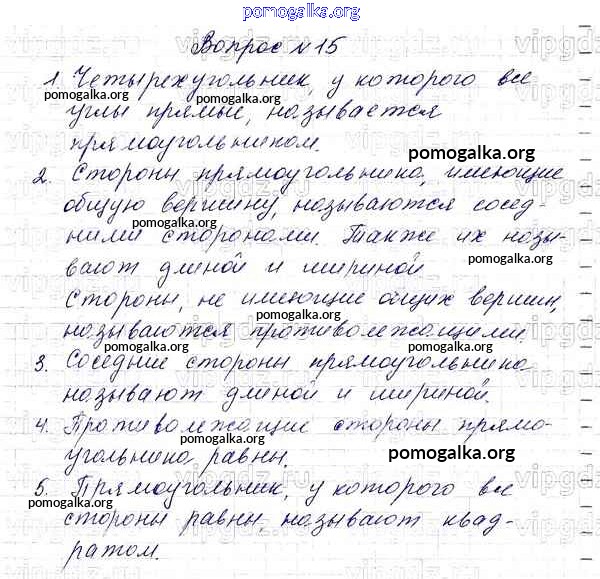 pomogalka.org
Вопрос №15
1. Четырехугольник, у которого все
pomogalka.org
углы прямые, называется
прямоугольником.
pomogalka.org
2. Стороны прямоугольника, имеющие
общую вершину, называются сосед-
pomogalka.org
ними сторонами. Также их назы-
вают длиной и шириной.
pomogalka.org
Стороны, не имеющие общих вершин,
pomogalka.org
называются противолежащими.
pomogalka.org
3. Соседние стороны прямоугольника
называют длиной и шириной.
pomogalka.org
4. Противолежащие стороны прямо-
pomogalka.org
угольника равны.
pomogalka.org
5. Прямоугольник, у которого все
pomogalka.org
стороны равны, называют квад-
ратом.
pomogalka.org